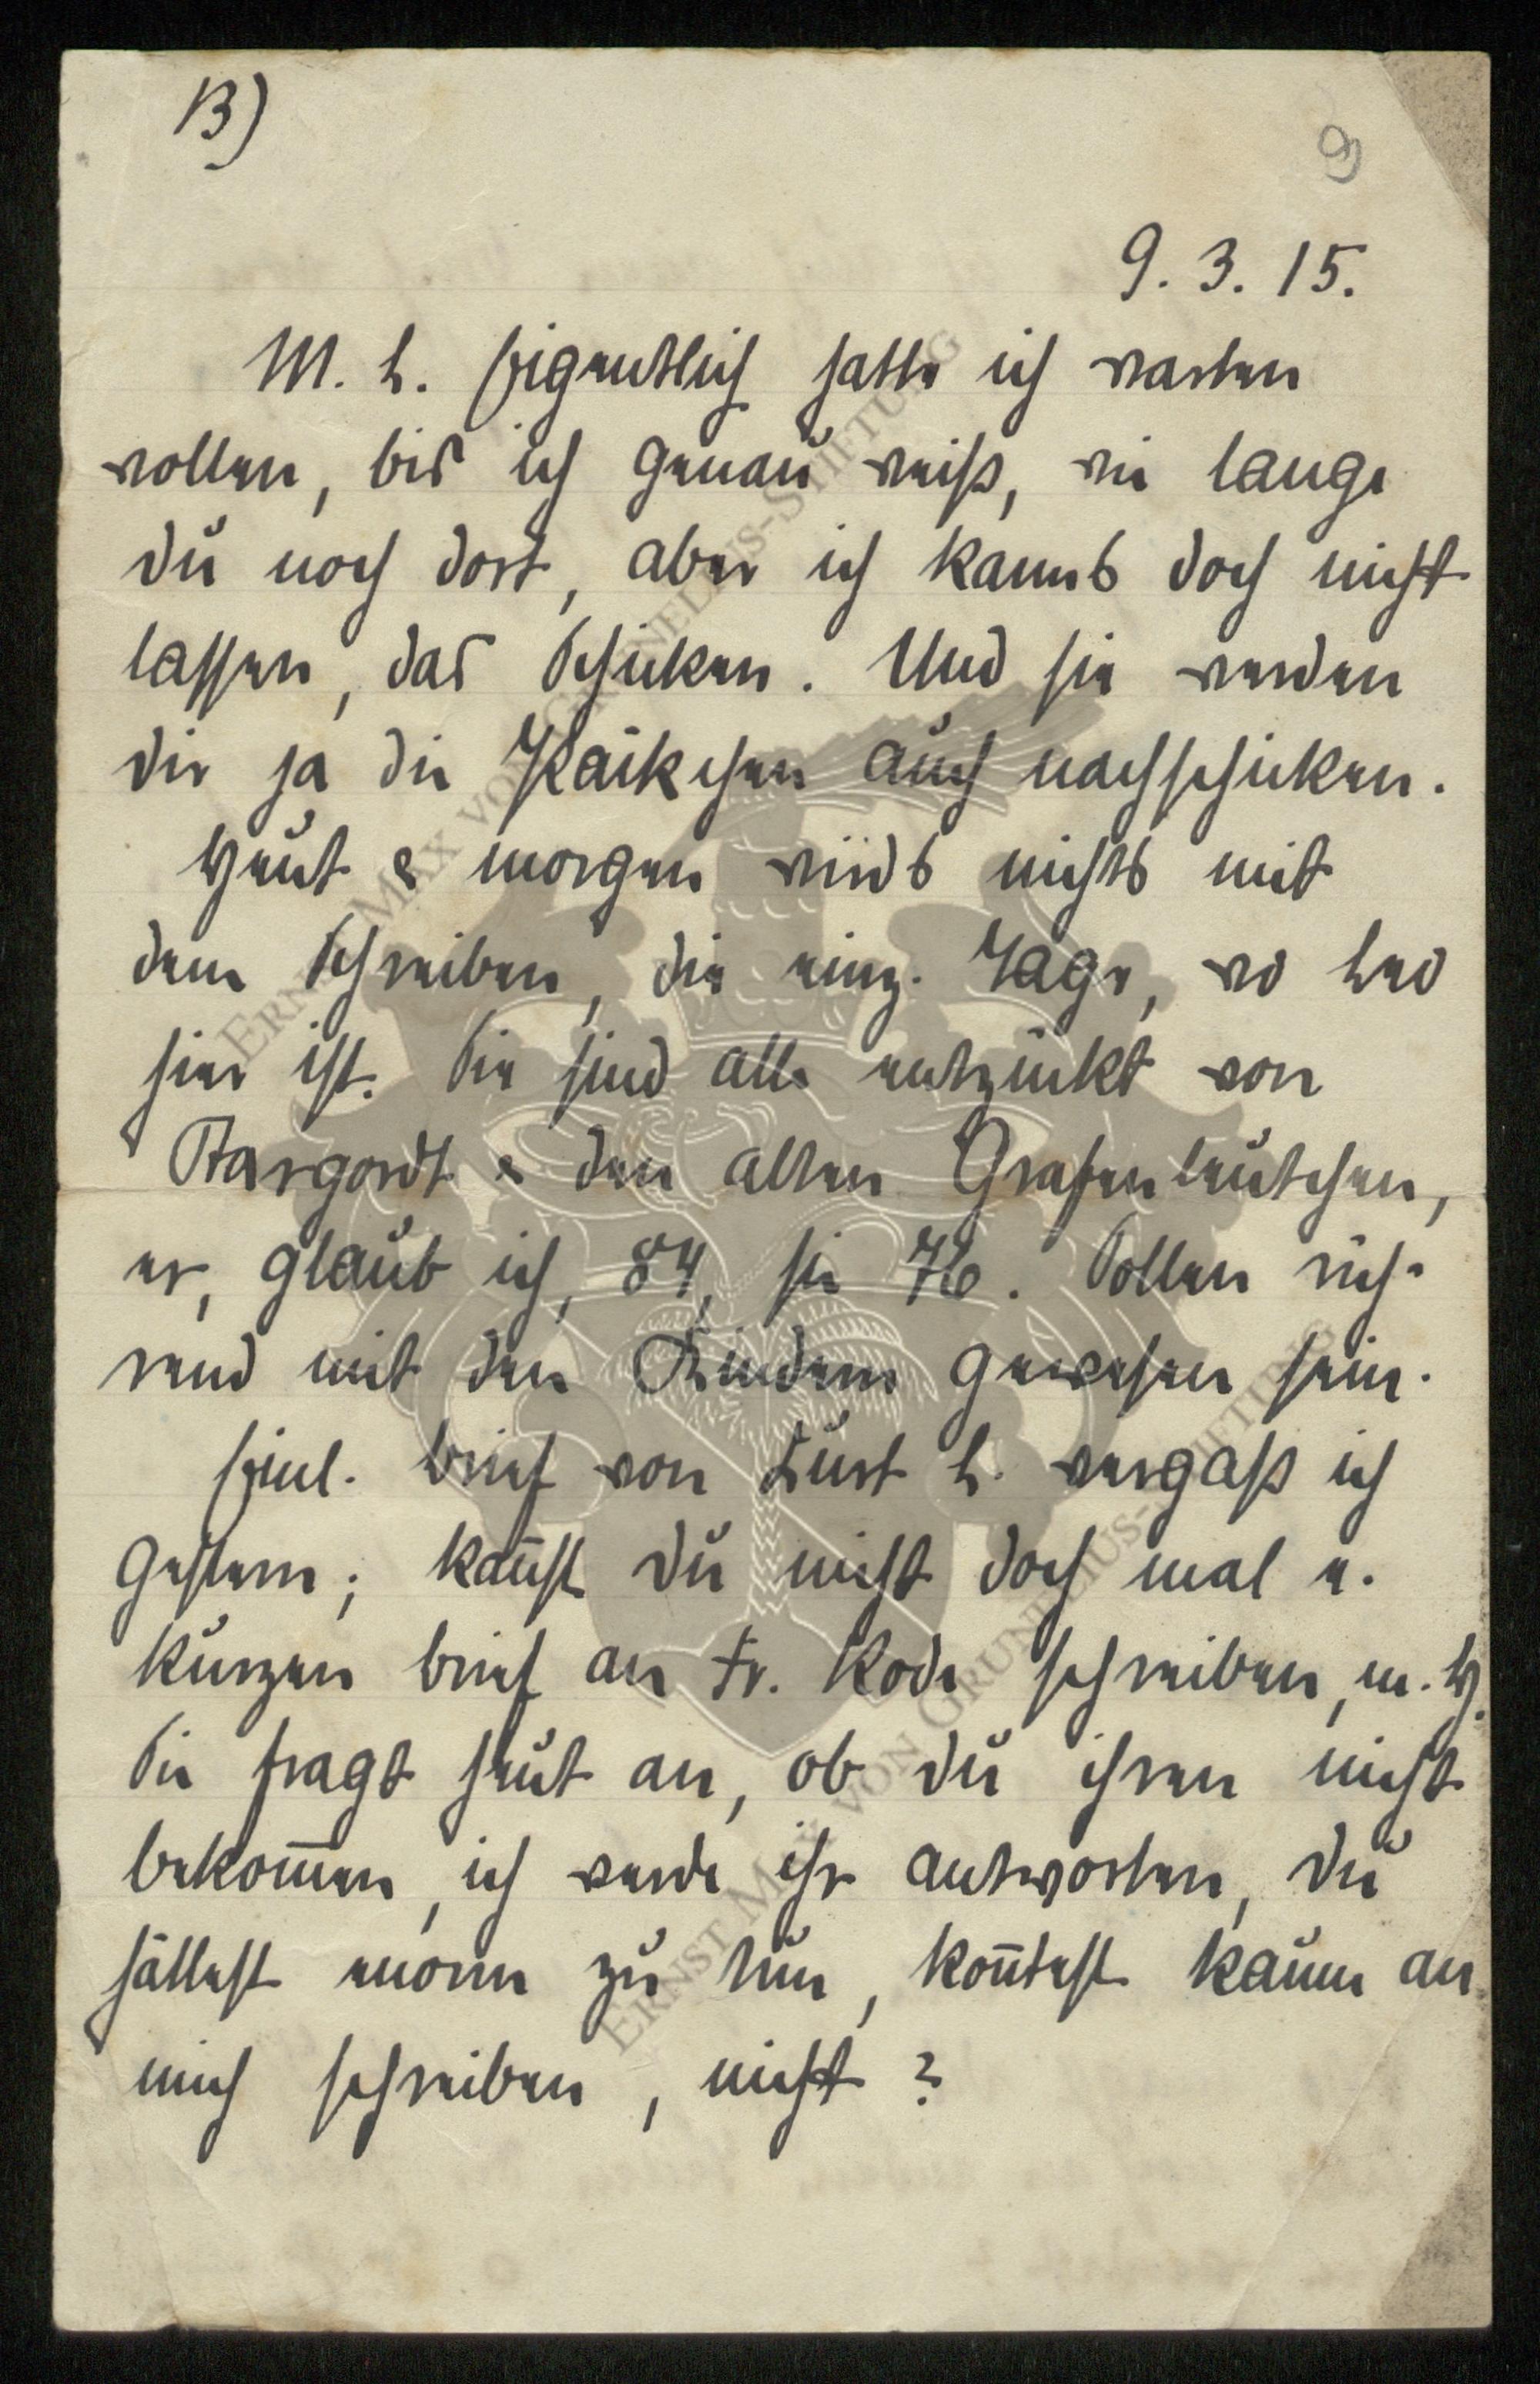 13)
9
9. 3. 15.
M. L. Eigentlich hatte ich warten
wollen, bis ich genau weiß, wie lange
du noch dort, aber ich kanns doch nicht
lassen, das Schicken. Und sie werden
dir ja die Päckchen auch nachschicken.
Heut & morgen wirds nichts mit
dem Schreiben, die einz. Tage, wo Leo
hier ist. Sie sind alle entzückt von
Stargordt & den alten Grafenleutchen,
er, glaub ich, 84, sie 76. Sollen rüh-
rend mit den Kindern gewesen sein.
Einl. Brief von Kurt L. vergaß ich
gestern; kannst du nicht doch mal e.
kurzen Brief an Fr. Rode schreiben, m. H.
Sie fragt heut an, ob du ihren nicht
bekommen, ich werde ihr antworten, du
hättest enorm zu tun, konntest kaum an
mich schreiben, nicht?
ERNST MAX VON GRUNELIUS-STIFTUNG
ERNST MAX VON GRUNELIUS-STIFTUNG